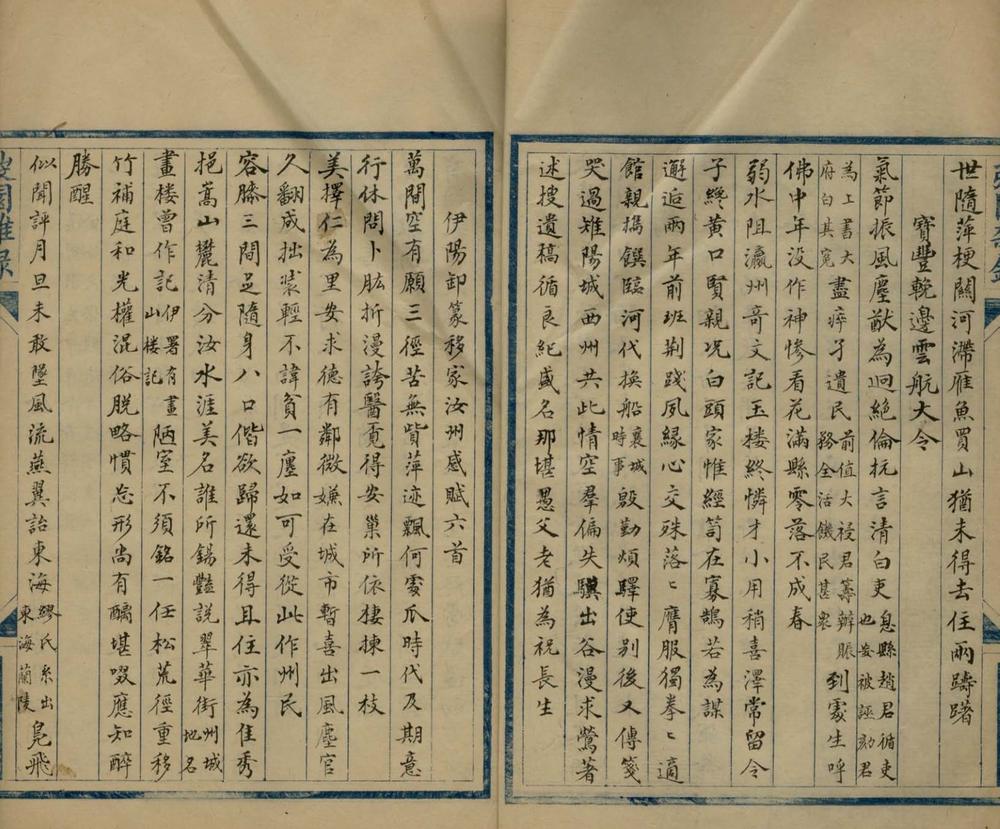 世隨萍梗關河滯雁魚買山猶未得去住兩躊躇
寶豐輓邊雲航大令
氣節振風塵猷為迥絕倫抗言清白吏息縣趙君循吏也妄被誣劾君
為上書大府白其寃盡瘁孑遺民前值大祲君籌辦賑務全活饑民甚衆到處生呼
佛中年没作神慘看花滿縣零落不成春
弱水阻瀛州奇文記玉楼終憐才小用稍喜澤常留令
子終黄口賢親况白頭家惟經笥在寡鵠若為謀
邂逅兩年前班荆践夙緣心交殊落〻膺服獨拳〻適
館親攜饌臨河代換船襄城時事殷勤煩驛使别後又傳箋
哭過雉陽城西州共此情空羣偏失驥出谷漫求鶯著
述搜遺稿循良紀盛名那堪愚父老猶為祝長生
伊陽卸篆移家汝州感賦六首
萬間空有願三徑苦無貲萍迹飄何處瓜時代及期意
行休問卜肱折漫誇醫覔得安巢所依棲揀一枝
美擇仁為里安求德有鄰微嫌在城市暫喜出風塵官
久翻成拙装輕不諱貧一廛如可受從此作州民
容膝三間足隨身八口偕欲歸還未得且住亦為佳秀
挹嵩山麓清分汝水涯美名誰所錫豔説翠華街州城地名
畫楼曾作記伊署有畫山楼記陋室不須銘一任松荒徑重移
竹補庭和光權混俗脱略慣忘形尚有醨堪啜應知醉
勝醒
似聞評月旦未敢墜風流燕翼詒東海繆氏系出東海蘭陵鳧飛